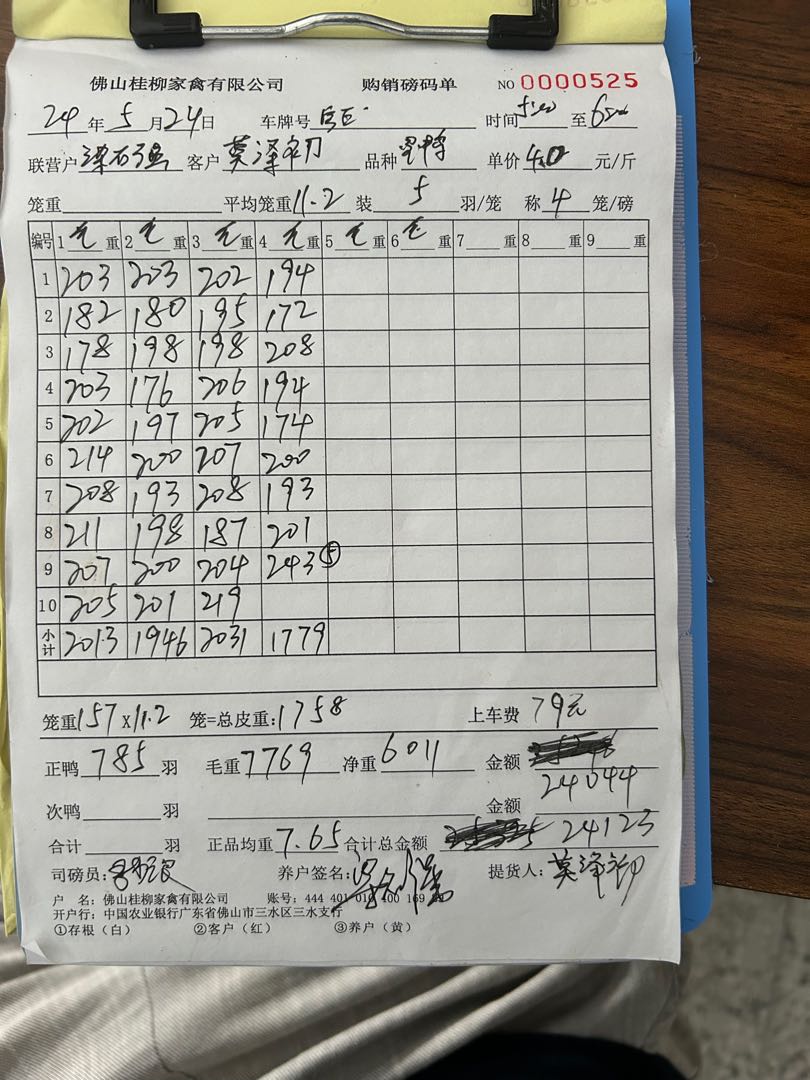 佛山桂柳家禽有限公司 购销磅码单 NO 0000525
24年5月24日 车牌号 时间5:00至6:00
联营户 客户莫泽 品种 单价4.0元/斤
笼重 平均笼重11.2 装5羽/笼 称4笼/磅
编号 1毛重 2毛重 3毛重 4毛重 5毛重 6毛重 7重 8重 9重
1 203 203 202 194
2 182 180 195 172
3 178 198 198 208
4 203 176 206 194
5 202 197 205 174
6 214 200 207 200
7 208 193 208 193
8 211 198 187 201
9 207 200 204 243⑤
10 205 201 219
小计 2013 1946 2031 1779
笼重157x11.2 笼=总皮重:1758 上车费79元
正鸭785羽 毛重7769 净重6011 金额
24044
次鸭羽 金额
合计羽 正品均重7.65 合计总金额24123
司磅员: 养户签名: 提货人:莫泽
户 名: 佛山桂柳家禽有限公司 账号: 444 401 010 400 169
开户行: 中国农业银行广东省佛山市三水区三水支行
①存根（白） ②客户（红） ③养户（黄）